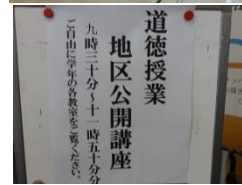 道徳授業
地区公開講座
九時三十分～十一時五十分
ご自由に学年の各教室をご覧ください。